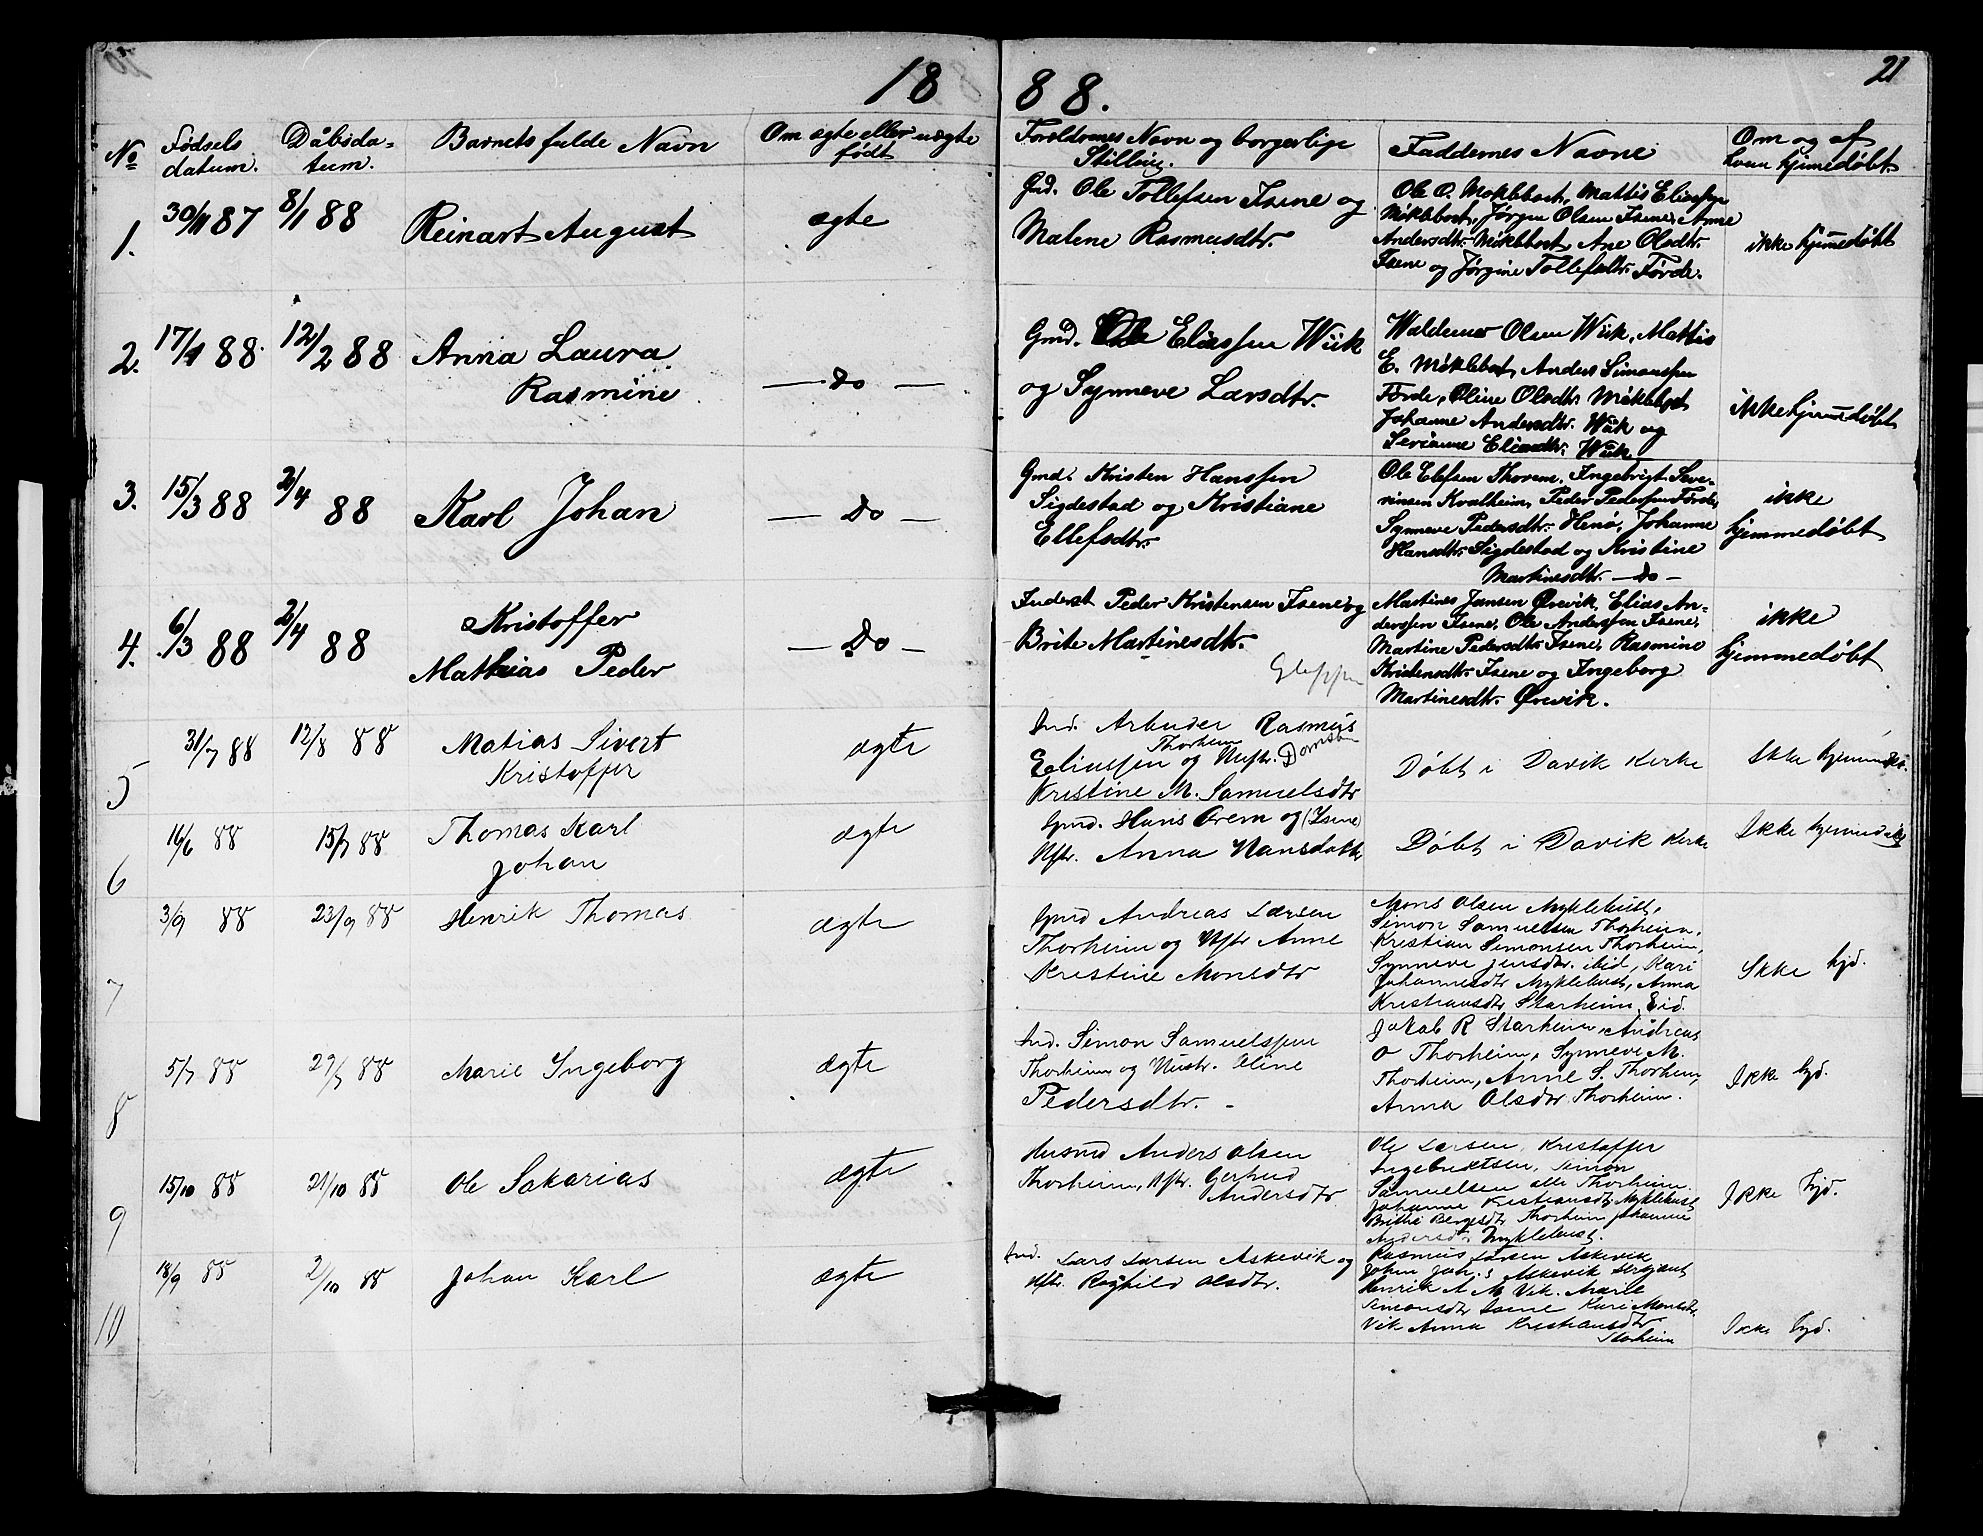 20
21
18 88.
No
Fødsels
datum.
Dåbsda-
tum.
Barnets fulde Navn
Om ægte eller uægte
født
Foreldrenes Navn og borgerlige
Stilling.
Faddernes Navne
Om og af
hvem hjemedøbt.
1.
30/11 87
8/1 88
Reinart August
ægte
Gmd. Ole Tollefsen Isene og
Malene Rasmusdtr.
Ole O. Møklebost, Mattis Eliassen
Møklebost, Jørgen Olsen Isene, Anne
Andersdtr. Møklebost, Ane Olsdtr.
Isene og Jørgine Tollefsdtr. Førde.
ikke hjemedøbt
2.
17/1 88.
12/2 88
Anna Laura
Rasmine
— Do —
Gmd. Ole Eliassen Wiik
og Synneve Larsdtr.
Waldemar Olsen Wiik, Mattis
E. Møklebost, Anders Simonssen
Førde, Oline Olsdtr. Møklebost
Johanne Andersdtr. Wiik og
Serianne Eliasdtr. Wiik
ikke hjemedøbt
3.
15/3 88
2/4 88
Karl Johan
— Do —
Gmd. Kristen Hanssen
Sigdestad og Kristiane
Ellefsdtr.
Ole Elefsen Thorem, Ingebrigt Seve-
rinsen Kvalheim, Peder Pedersen Førde,
Synneve Pedersdtr. Henø, Johanne
Hansdtr. Sigdestad og Kristine
Martinesdtr. — Do —
ikke
hjemmedøbt
4.
6/3 88
2/4 88
Kristoffer
Mathias Peder
— Do —
Inderst Peder Kristensen Isene og
Brite Martinesdtr.
Martines Jansen Ørevik, Elias An-
derssen Isene, Ole Anderssen Isene,
Martine Pedersdtr. Isene, Rasmine
Kristensdtr. Isene og Ingeborg
Martinesdtr. Ørevik.
ikke
hjemmedøbt
5
31/7 88
12/8 88
Matias Sivert
Kristoffer
ægte
Ind. Arbeider Rasmus
Thorheim
Eliassen og Hustr.
Kristine M. Samuelsdtr
Døbt i Davik Kirke
Ikke
6
16/6 88
15/7 88
Thomas Karl
Johan
ægte
Gmd. Hans Orem og (Isene)
Hstr. Anna Hansdatter
Døbt i Davik Kirke
Ikke
7
3/9 88
23/9 88
Henrik Thomas
ægte
Gmd Andreas Larsen
Thorheim og Hstr Anne
Kristine Monsdtr
Mons Olsen Myklebust,
Simon Samuelsen Thorheim,
Kristian Simonsen Thorheim,
Synneve Jensdtr. ibid, Kari
Johannesdtr Myklebust, Anna
Kristiansdtr Starheim, Eid.
Ikke hjd.
8
5/7 88
29/7 88
Marie Ingeborg
ægte
Ind. Simon Samuelssen
Thorheim og Hustr. Oline
Pedersdtr. -
Jakob R Starheim, Andreas
O Thorheim, Synneve M.
Thorheim, Anne S. Thorheim,
Anna Olsdtr Thorheim.
Ikke hjd.
9
15/10 88
21/10 88
Ole Sakarias
ægte
Husmd Anders Olsen
Thorheim, Hstr. Gertrud
Andersdtr
Ole Larsen, Kristoffer
Ingebrigtsen, Simon
Samuelsen alle Thorheim.
Johanne Kristiansdtr Myklebust
Brithe Børgesdtr Thorheim Johanne
Andersdtr Myklebust.
Ikke hjd.
10
18/9 88
2/10 88
Johan Karl
ægte
Ind. Lars Larsen Askevik og
Hstr. Raghild Olsdtr.
Rasmus Larsen Askevik
Johan Askevik sergeant
Henrik A M Vik. Marie
Simonsdtr Isene Kari Monsdtr
Vik Anna Kristiansdtr
Thorheim
Ikke hjd.